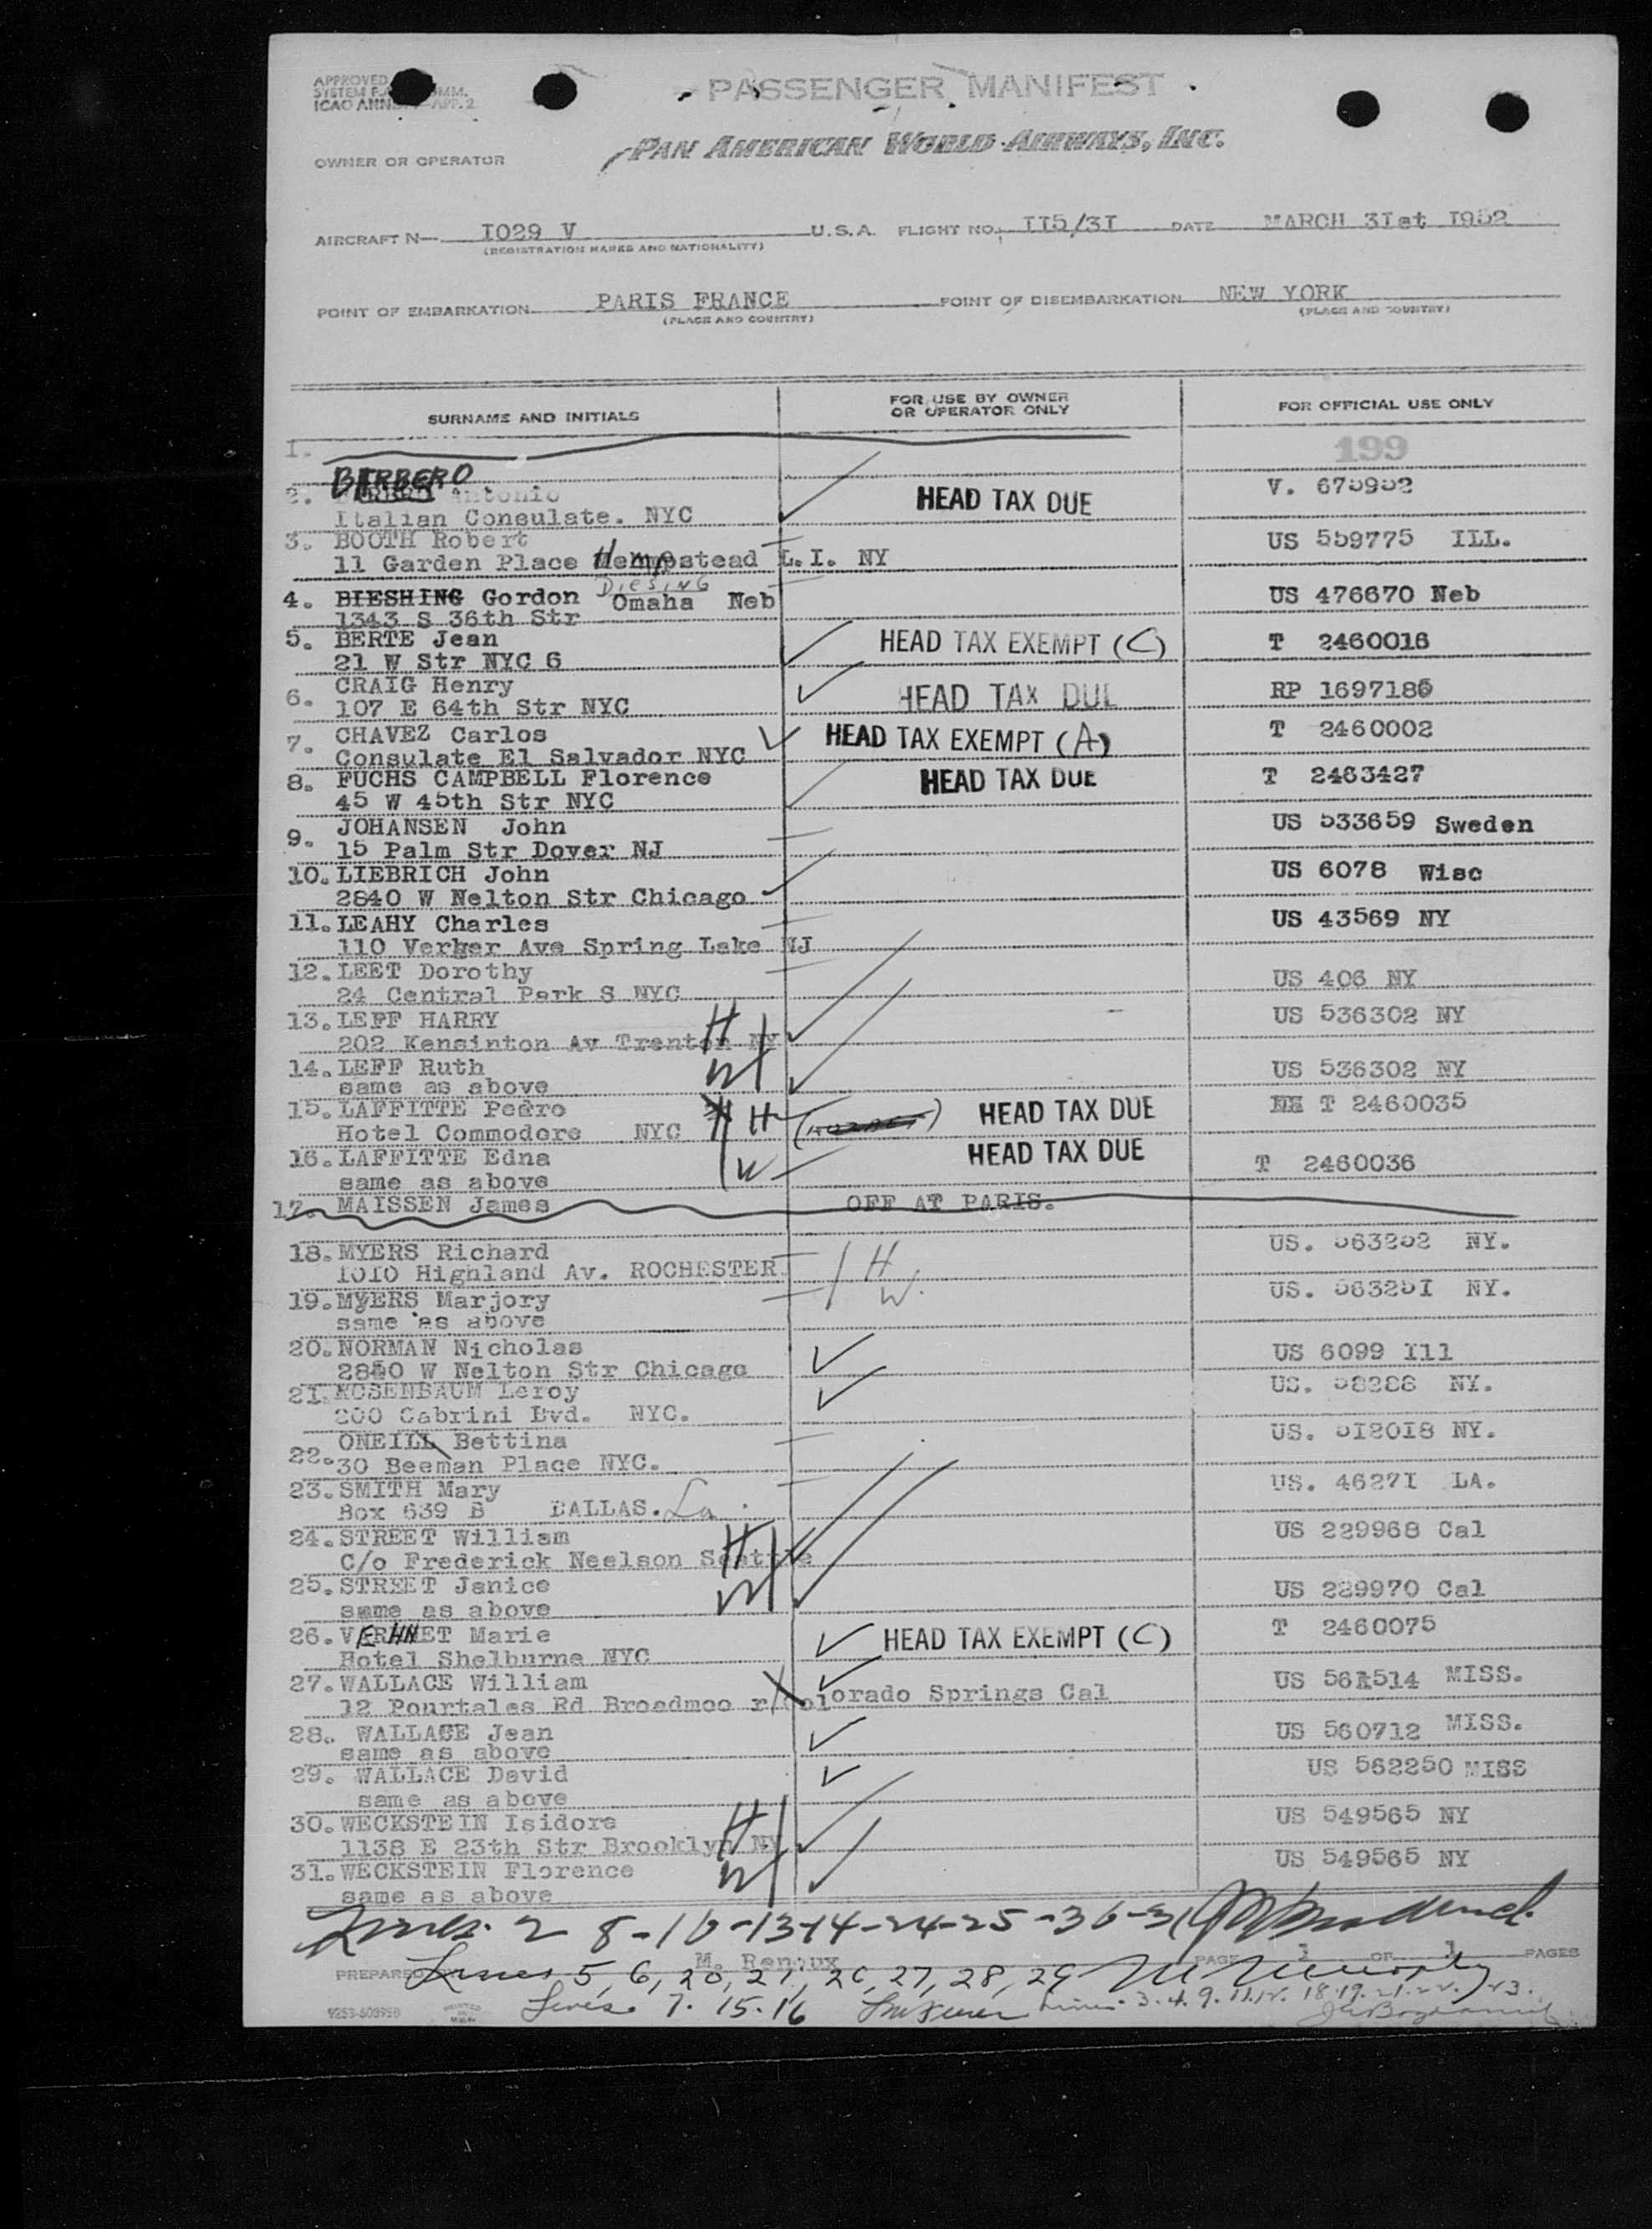 APPROVED
ICAO
PASSENGER MANIFEST
PAN AMERICAN WORLD AIRWAYS, INC.
OWNER OR OPERATOR
AIRCRAFT N— I029 V U.S.A. FLIGHT NO. II5/3I DATE MARCH 3Ist I952
(REGISTRATION MARKS AND NATIONALITY)
POINT OF EMBARKATION PARIS FRANCE POINT OF DISEMBARKATION NEW YORK
(PLACE AND COUNTRY) (PLACE AND COUNTRY)
SURNAME AND INITIALS FOR USE BY OWNER OR OPERATOR ONLY FOR OFFICIAL USE ONLY
1. 199
BARBERO
2. Antonio HEAD TAX DUE V.
Italian Consulate. NYC
3. BOOTH Robert US 559775 ILL.
11 Garden Place Hempstead L.I. NY
DIESING
4. BIESHING Gordon Omaha Neb US 476670 Neb
1343 S 36th Str
5. BERTE Jean HEAD TAX EXEMPT (C) T 2460016
21 W Str NYC 6
6. CRAIG Henry HEAD TAX DUE RP 1697186
107 E 64th Str NYC
7. CHAVEZ Carlos HEAD TAX EXEMPT (A) T 2460002
Consulate El Salvador NYC
8. FUCHS CAMPBELL Florence HEAD TAX DUE T 2463427
45 W 45th Str NYC
9. JOHANSEN John US 533659 Sweden
15 Palm Str Dover NJ
10. LIEBRICH John US 6078 Wisc
2840 W Nelton Str Chicago
11. LEAHY Charles US 43569 NY
110 Verher Ave Spring Lake NJ
12. LEET Dorothy US 406 NY
24 Central Park S NYC
13. LEFF HARRY H US 536302 NY
202 Kensinton Av Trenton NY
14. LEFF Ruth W US 536302 NY
same as above
15. LAFFITTE Pedro H HEAD TAX DUE T 2460035
Hotel Commodore NYC
16. LAFFITTE Edna W HEAD TAX DUE T 2460036
same as above
17. MAISSEN James OFF AT PARIS.
18. MYERS Richard H US. 563252 NY.
1010 Highland Av. ROCHESTER
19. MYERS Marjory W. US. 56325I NY.
same as above
20. NORMAN Nicholas US 6099 Ill
2840 W Nelton Str Chicago
21. ROSENBAUM Leroy US. 58288 NY.
200 Cabrini Bvd. NYC.
22. ONEILL Bettina US. 5I20I8 NY.
30 Beeman Place NYC.
23. SMITH Mary US. 4627I LA.
Box 639 B DALLAS. La.
24. STREET William H US 229968 Cal
C/o Frederick Neelson Seattle
25. STREET Janice W US 229970 Cal
same as above
26. VEHNET Marie HEAD TAX EXEMPT (C) T 2460075
Hotel Shelburne NYC
27. WALLACE William US 561514 MISS.
12 Pourtales Rd Broadmoo r/Colorado Springs Cal
28. WALLACE Jean US 560712 MISS.
same as above
29. WALLACE David US 562250 MISS
same as above
30. WECKSTEIN Isidore H US 549565 NY
1138 E 23th Str Brooklyn NY
31. WECKSTEIN Florence W US 549565 NY
same as above
Lines 2 8-10-13-14-24-25-30-31
M. Renoux
PREPARED PAGE 1 OF 1 PAGES
Lines 5, 6, 20, 21, 26, 27, 28, 29
Lines 7. 15. 16 Lines. 3. 4. 9. 11. 12. 18. 19. 21. 22. 23.